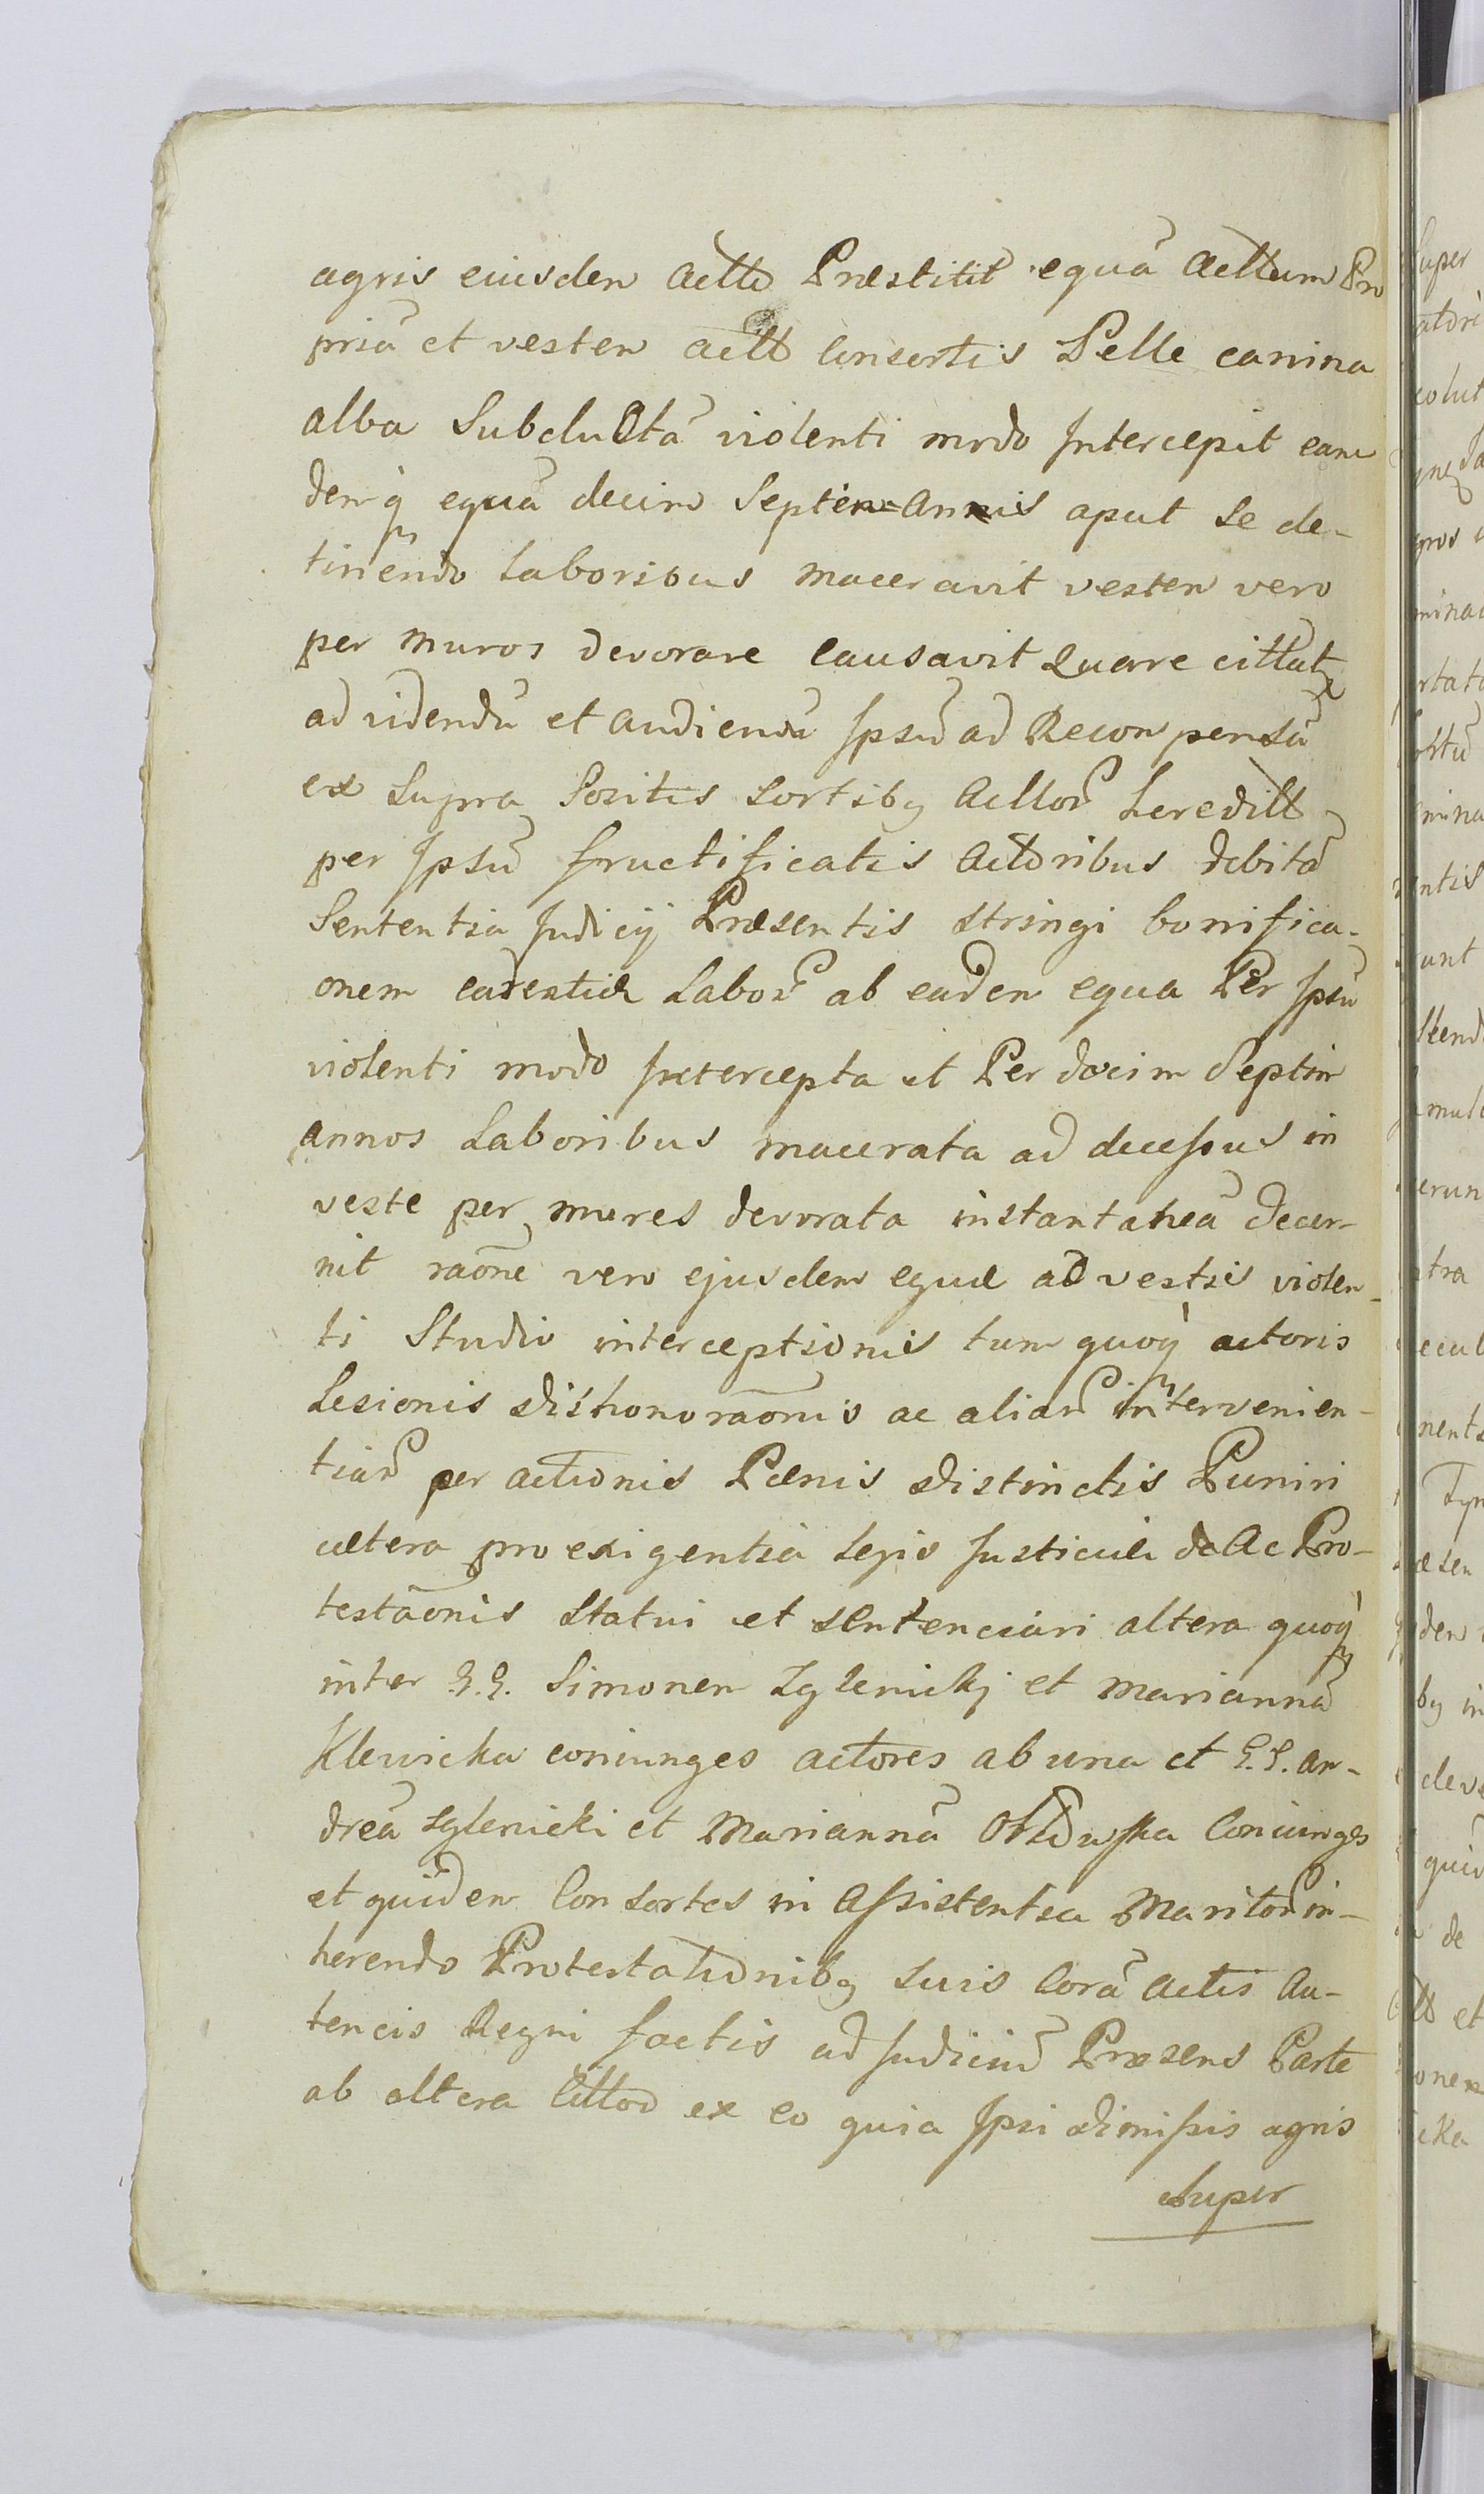 agris eiusdem Actto Præstitit equã Acttum Pro
priã et vestem Actt Consortis Pelle canina
alba Subductã violenti modo Intercepit eam
demq̀ equã decim Septem=Annis aput se de-
tinẽndo Laboribus maceravit vestem vero
per muros devorare Causavit Quare cittatꝫ
ad videndũ et Audiendũ Ipsũ ad Recompensũ
ex Supra Positis Sortibꝫ Acttor̃ hereditt
per Ipsũ fructificatis Actoribus debitã
Sententia Judicÿ Præsentis stringi bonifica-
onem Labor̃ ab eadem equa Per Ipsũ
violenti modo Intercepta et Per decim Septim
annos Laboribus macerata ad decessus in
veste per mures devorata instantaneã decer-
nit raõne vero ejusdem equæ ad vestis violen-
ti Studio interceptionis tum quoq̀ actoris
Lesionis dishonoraõnis ac aliar̃ intervenien-
tiar̃ per actionis Pænis distinctis Puniri
cætera pro exigentia Legis Iusticiæ de Ac Pro-
testãonis Statui et Sentenciari altera quoq̀
inter G.G. Simonem Zglenickj et Mariannã
Klewicka coniunges actores ab una et G.G. An-
dreã Zglenicki et Mariannã Coniunges
et quidem Consortes in Assistentia Maritor̃ in-
herendo Protestationibꝫ Suis Corã Actis Au-
tencis Regni factis ad Judiciũ Præsens Parte
ab altera Cittos ex eo quia Ipsi dimissis agris
Super